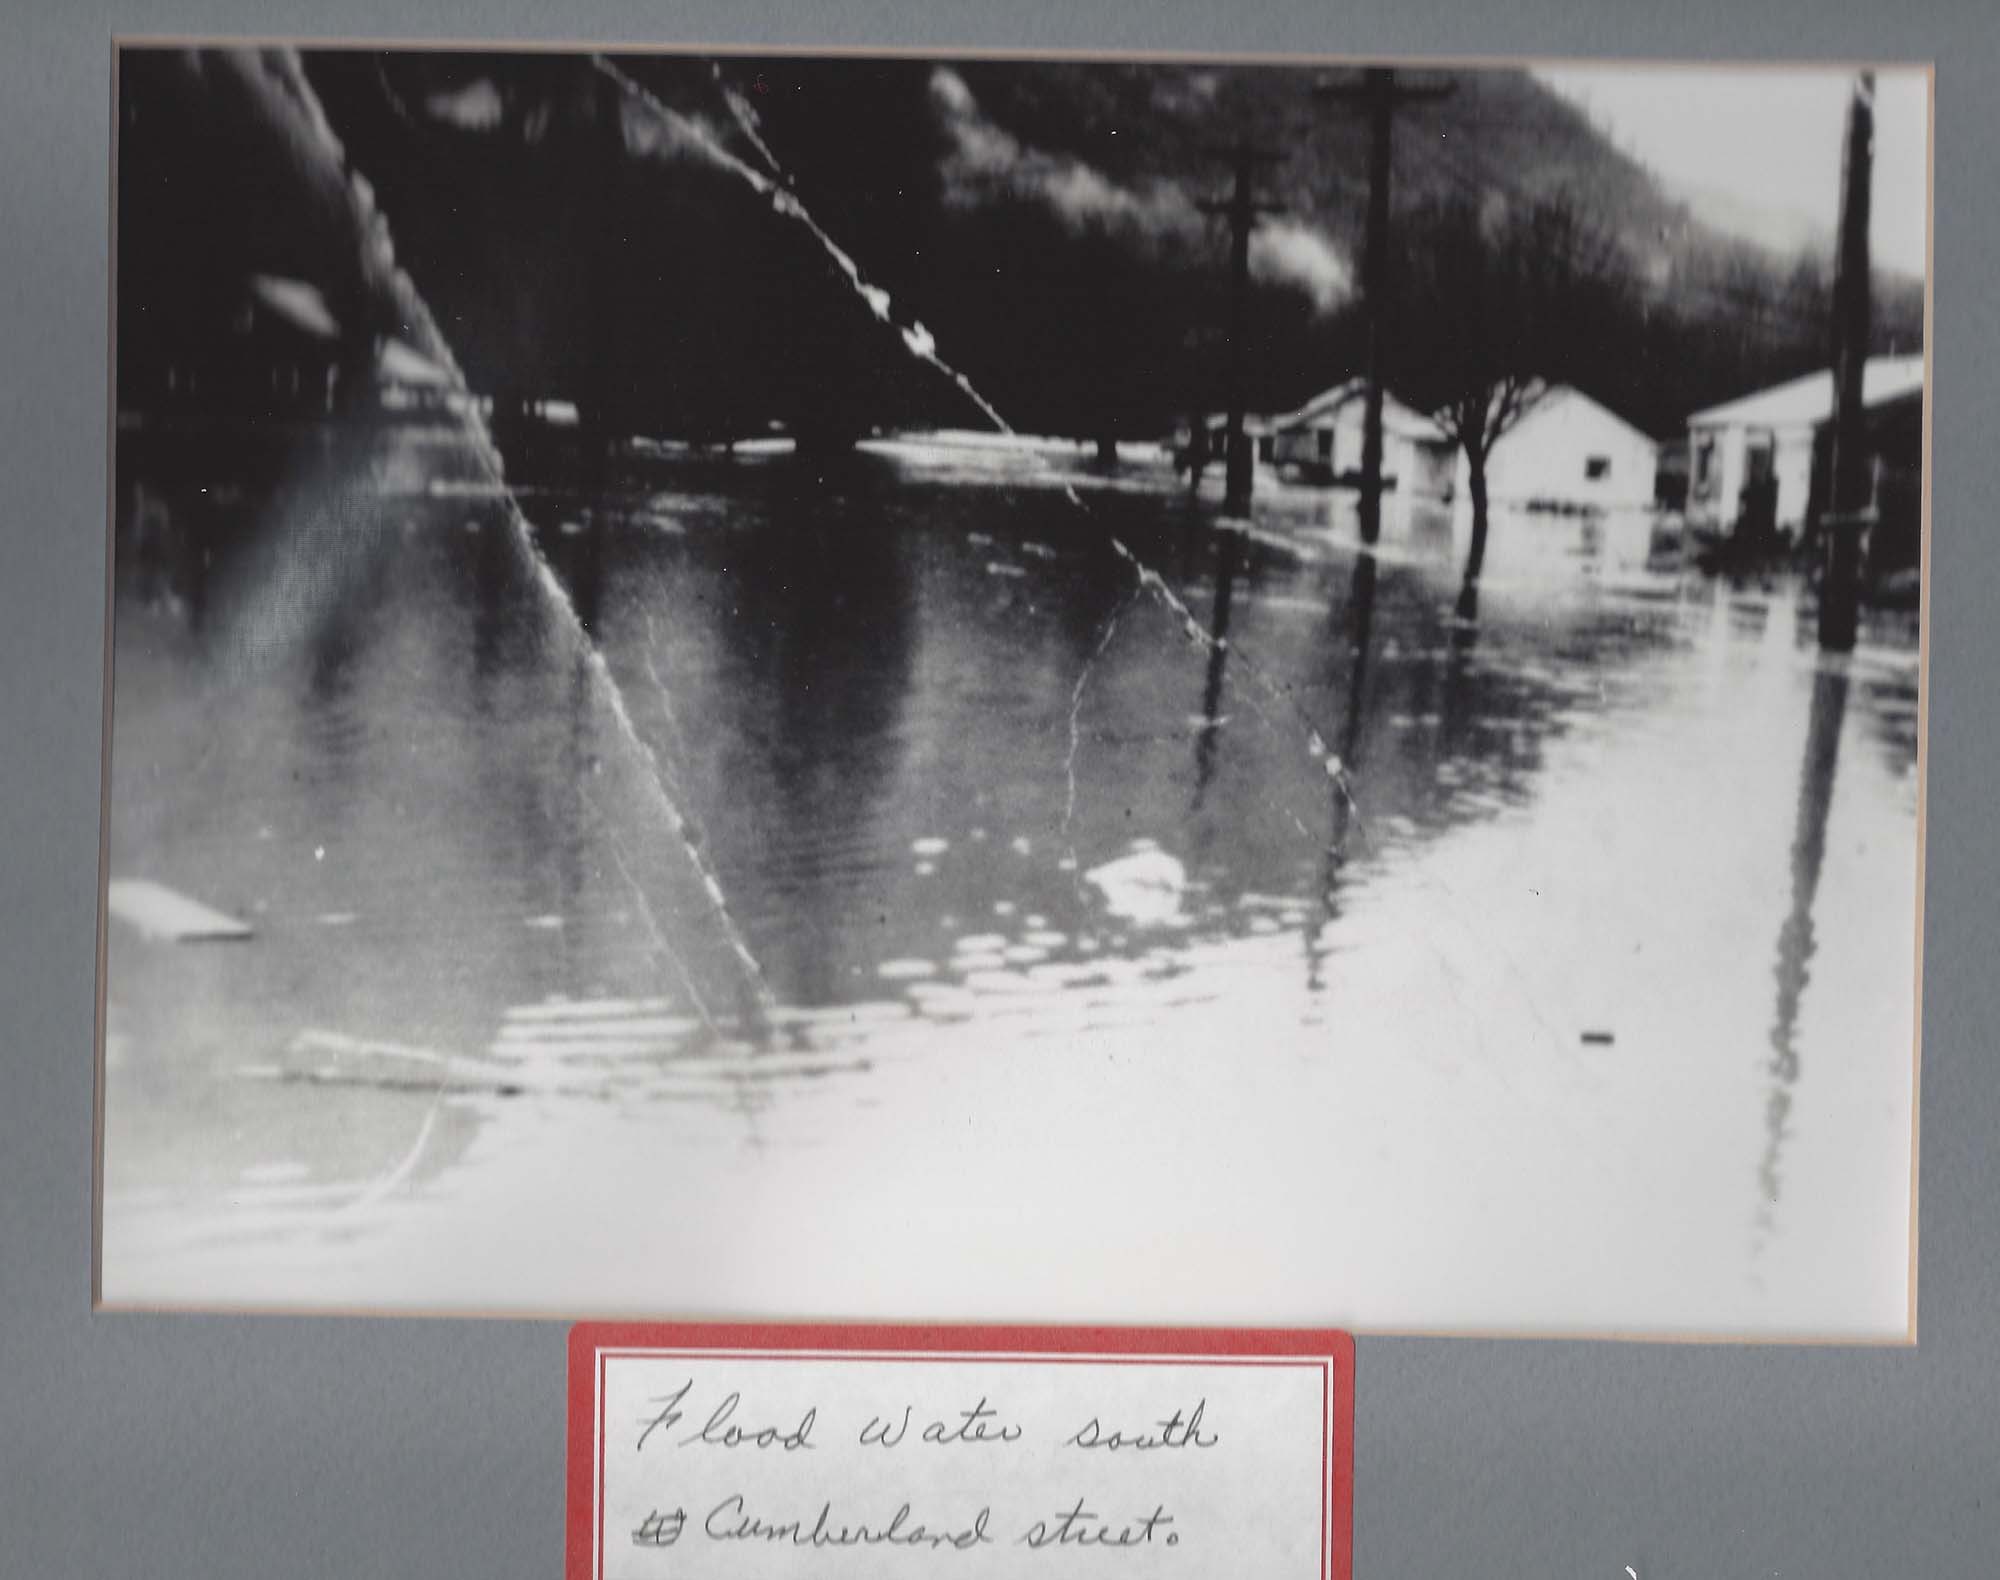 Flood Water south
Cumberland street.